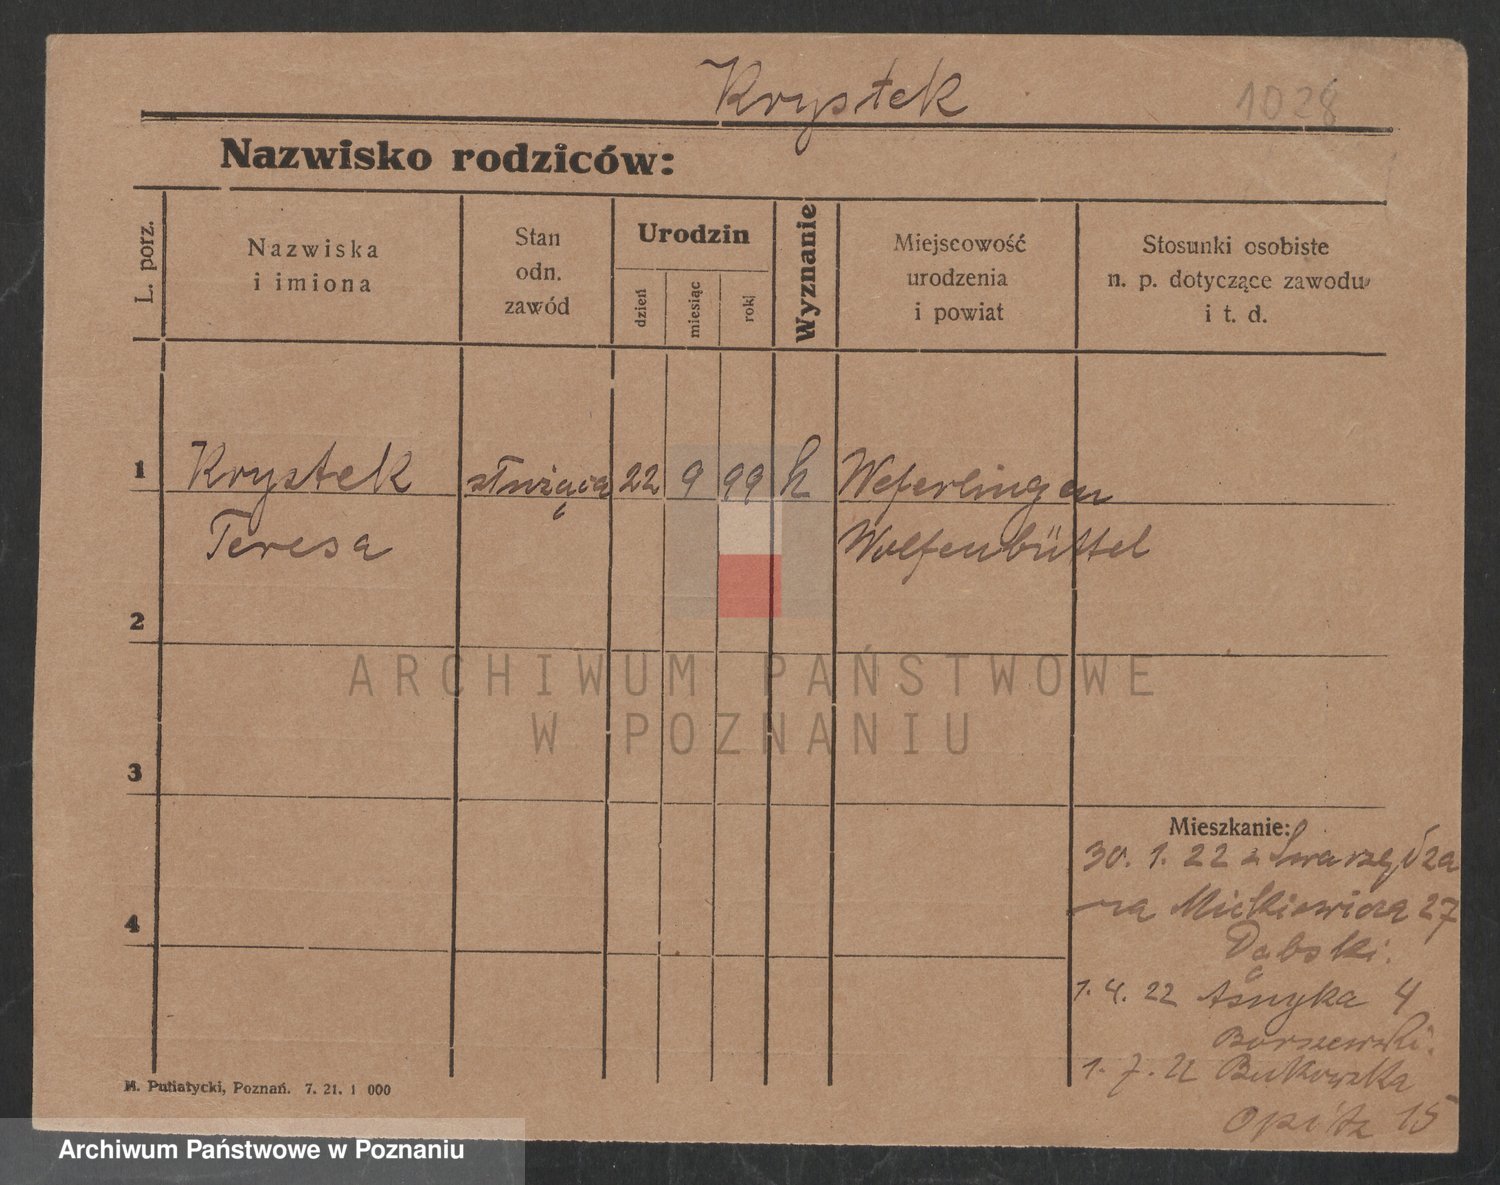 Krystek
1028
Nazwisko rodziców:
L. porz.
Nazwiska
i imiona
Stan
odn.
zawód
Urodzin
dzień
miesiąc
rok
Wyznanie
Miejscowość
urodzenia
i powiat
Stosunki osobiste
n. p. dotyczące zawodu
i t. d.
1 Krystek służąca 22 9 99 k Weferlingen
Teresa Wolfenbüttel
2
ARCHIWUM PAŃSTWOWE
W POZNANIU
3
Mieszkanie:
30. 1. 22 z Swarzędza
na Mickiewicza 27
4
Dąbski.
1. 4. 22 Asnyka 4
Borszewski.
1. 7. 22 Bukowska
Opitz 15
M. Putiatycki, Poznań. 7. 21. 1 000
Archiwum Państwowe w Poznaniu